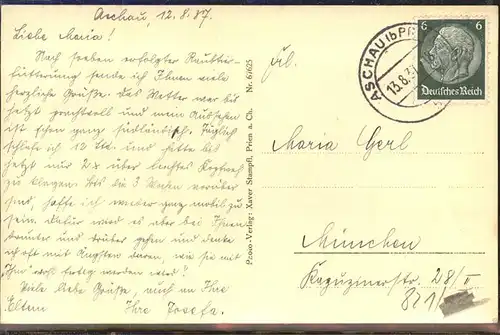 Aschau, 12.8.37.
Liebe Maria!
Nach soeben erfolgter Raubtier-
fütterung sende ich Ihnen viele
herzliche Grüße. Das Wetter war bis
jetzt prachtvoll und mein Aussehen
ist schon ganz südländisch. Täglich
schlafe ich 12 Std. und hatte bis
jetzt nur 2x über leichtes Kopfweh
zu klagen. Bis die 3 Wochen vorüber
sind, hoffe ich wieder ganz mobil zu
sein. Dafür wird es aber bei Ihnen
drunter und drüber gehen und denke
ich oft mit Ängsten daran, wie sie mit
Ihnen wohl fertig werden wird?
Viele liebe Grüße, auch an Ihre
Eltern Ihre Josefa.
Photo-Verlag: Xaver Stampfl, Prien a. Ch. Nr. 6/625
ASCHAU b PR
13.8.37
6 6
Deutsches Reich
Frl.
Maria Gerl
München
Kapuzinerstr. 28/II
821/